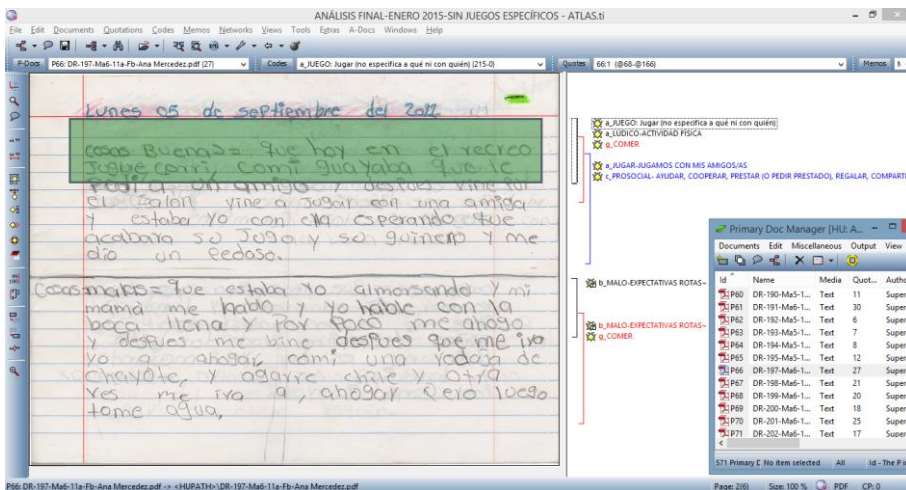 ANÁLISIS FINAL-ENERO 2015-SIN JUEGOS ESPECÍFICOS - ATLAS.ti
File Edit Documents Quotations Codes Memos Networks Views Tools Extras A-Docs Windows Help
P-Docs P66: DR-197-Ma6-11a-Fb-Ana Mercedez.pdf (27) Codes a_JUEGO: Jugar (no especifica a qué ni con quién) (215-0) Quotes 66:1 (@68-@166) Memos
Lunes 05 de septiembre del 2011
cosas Buenas= que hoy en el recreo
Jugue corri, comi guayaba que le
Pedi a un amigo y despues vine
el salon vine a Jugar con una amiga
y estaba yo con ella esperando que
acabara su Jugo y su guineno y me
dio un pedaso.
Cosas malas= que estaba Yo almorsando y mi
mamá me hablo y yo hable con la
boca llena y por poco me ahogo
y despues me bine despues que me iva
yo a ahogar, comi una rodaja de
chayote, y agarre chile y otra
ves me iva a, ahogar pero luego
tome agua,
a_JUEGO: Jugar (no especifica a qué ni con quién)
a_LÚDICO-ACTIVIDAD FÍSICA
g_COMER
a_JUGAR-JUGAMOS CON MIS AMIGOS/AS
c_PROSOCIAL- AYUDAR, COOPERAR, PRESTAR (O PEDIR PRESTADO), REGALAR, COMPARTI
b_MALO-EXPECTATIVAS ROTAS~
b_MALO-EXPECTATIVAS ROTAS~
g_COMER
Primary Doc Manager [HU: A...
Documents Edit Miscellaneous Output View
Id Name Media Quot... Autho
P60 DR-190-Ma5-1... Text 11 Super
P61 DR-191-Ma6-1... Text 30 Super
P62 DR-192-Ma5-1... Text 6 Super
P63 DR-193-Ma5-1... Text 7 Super
P64 DR-194-Ma6-1... Text 8 Super
P65 DR-195-Ma6-1... Text 12 Super
P66 DR-197-Ma6-1... Text 27 Super
P67 DR-198-Ma6-1... Text 21 Super
P68 DR-199-Ma6-1... Text 20 Super
P69 DR-200-Ma6-1... Text 18 Super
P70 DR-201-Ma6-1... Text 25 Super
P71 DR-202-Ma6-1... Text 17 Super
571 Primary D No item selected All Id - The P in
P66: DR-197-Ma6-11a-Fb-Ana Mercedez.pdf -> <HUPATH>\DR-197-Ma6-11a-Fb-Ana Mercedez.pdf Page: 2(6) Size: 100 % PDF CP: 0